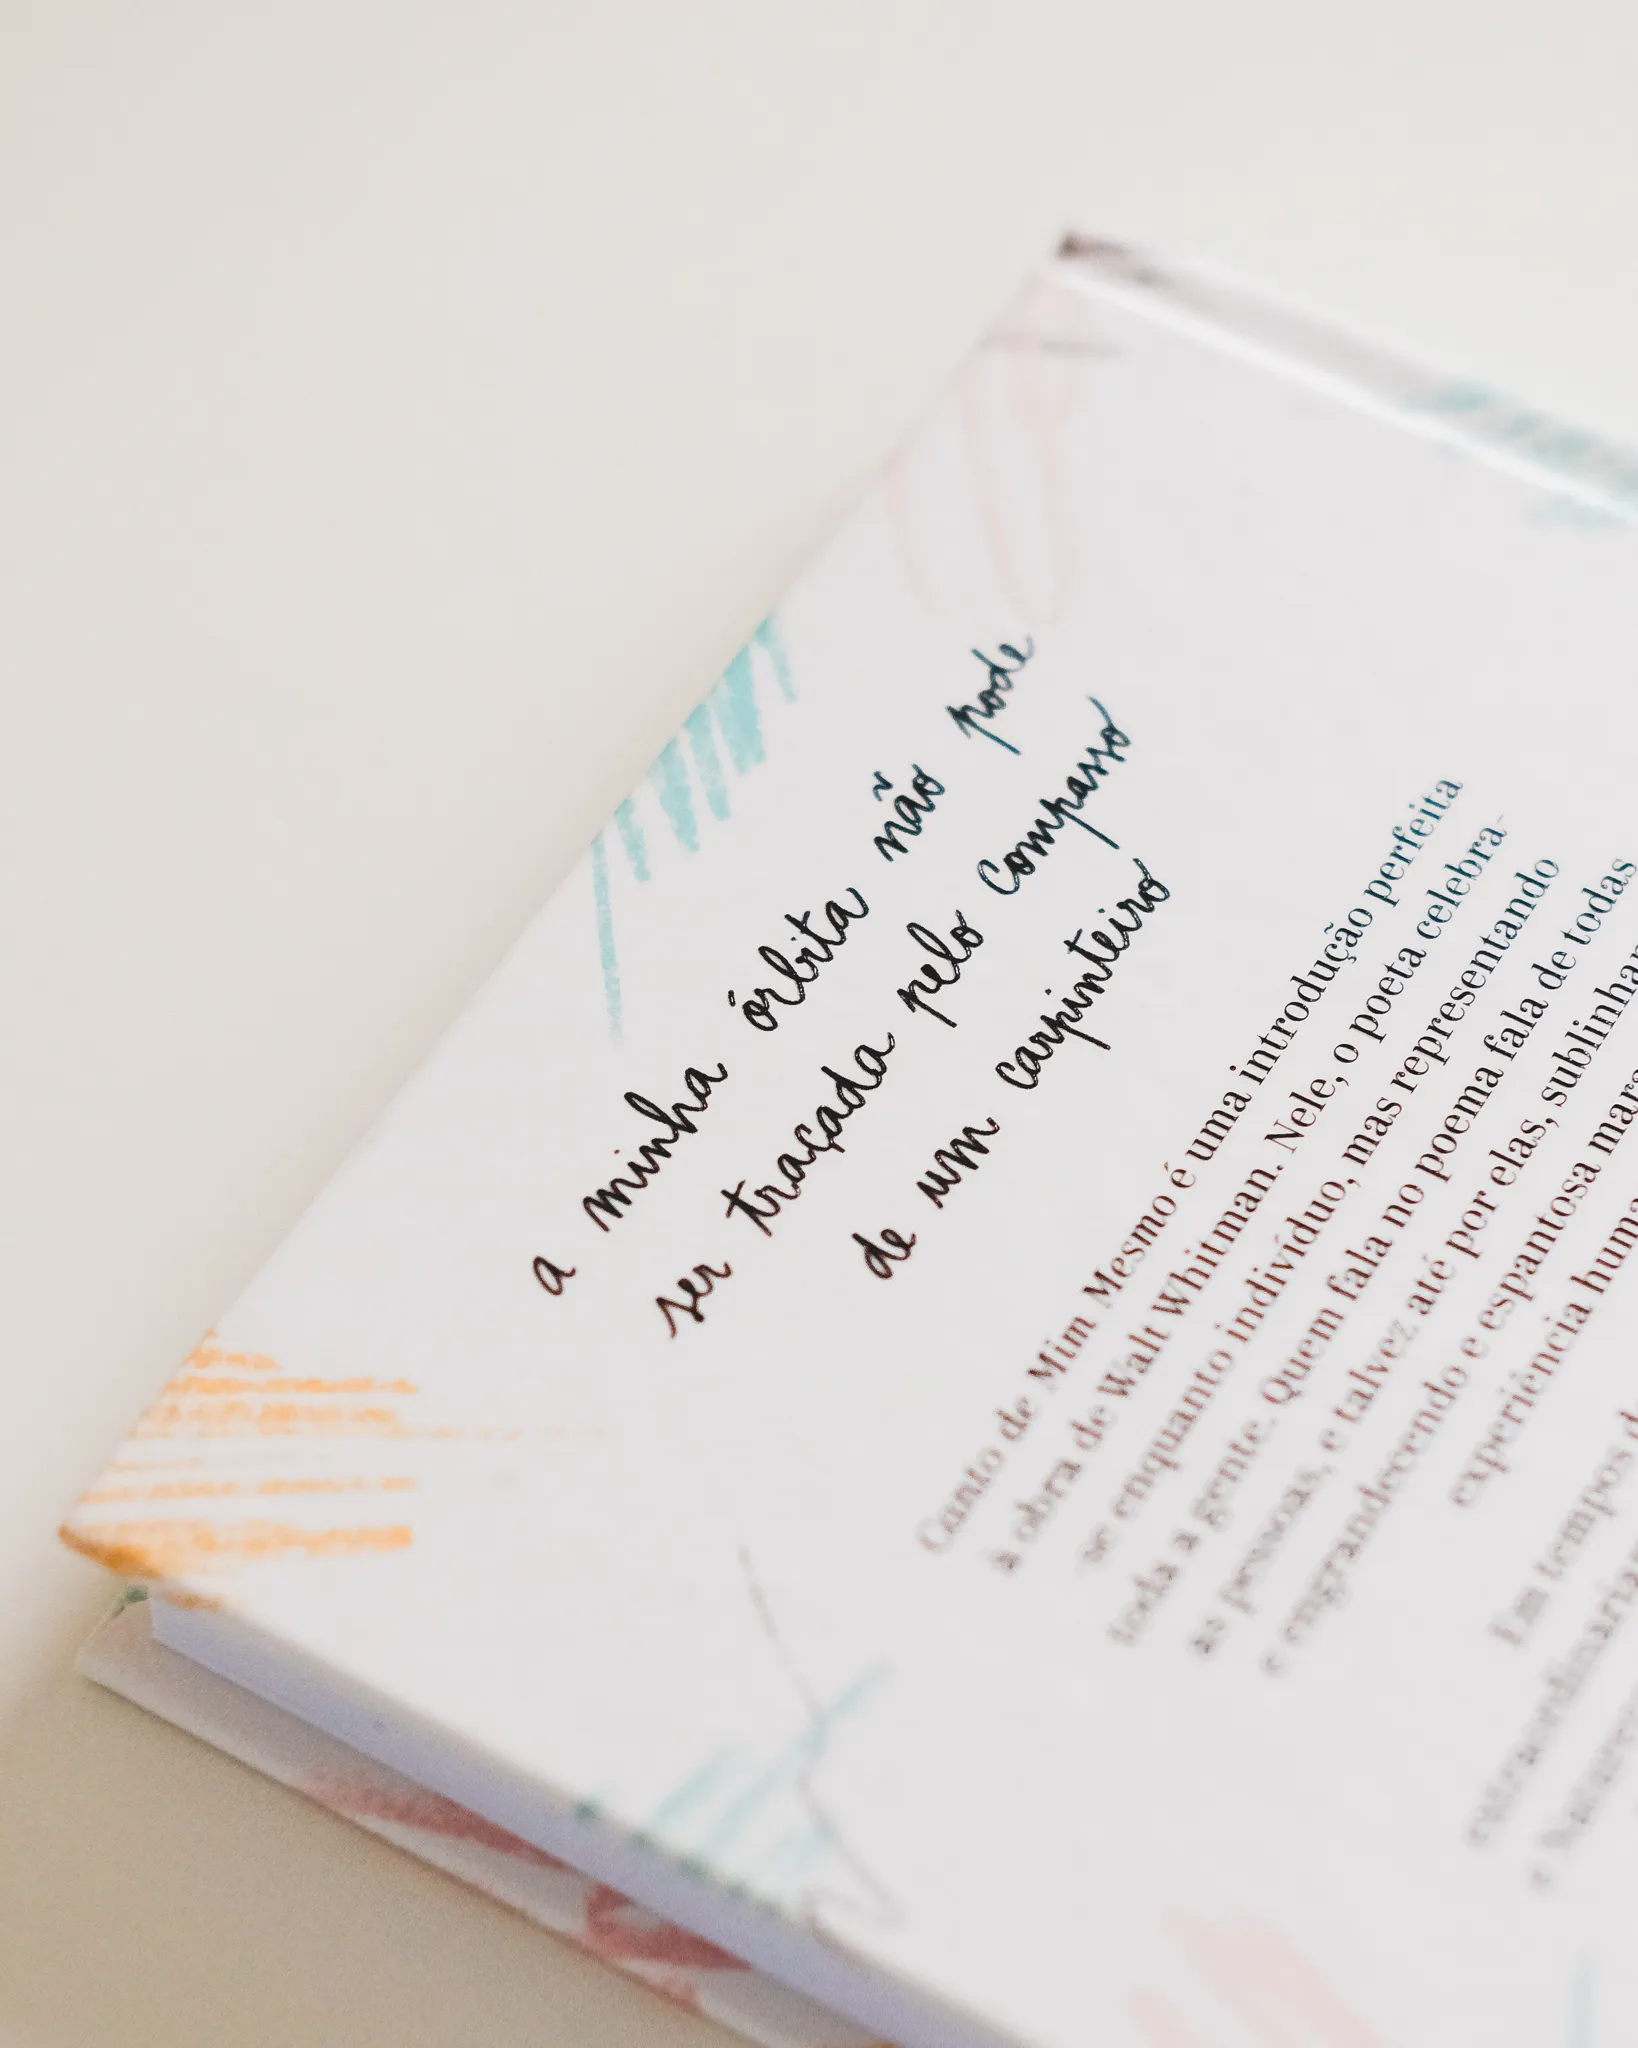 a minha órbita não pode
ser traçada pelo compasso
de um carpinteiro
Canto de Mim Mesmo é uma introdução perfeita
à obra de Walt Whitman. Nele, o poeta celebra-
se enquanto indivíduo, mas representando
toda a gente. Quem fala no poema fala de todas
as pessoas, e talvez até por elas, sublinhan
e engrandecendo e espantosa
experiência huma
Em tempos